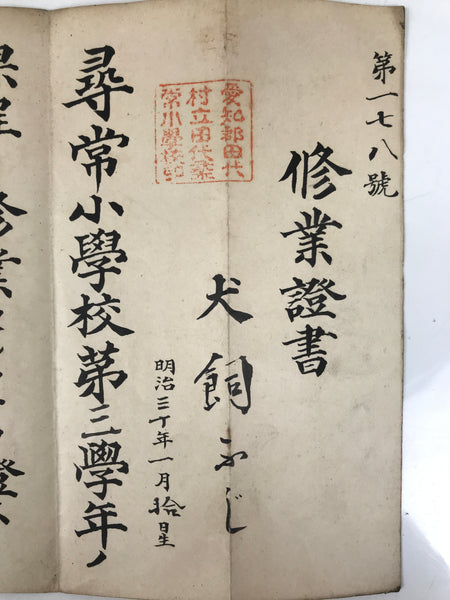 第一七八號
修業證書
愛知郡田代
村立田代尋
常小學校印
犬飼ふじ
明治三十年一月拾日生
尋常小學校第三學年ノ
修業
證